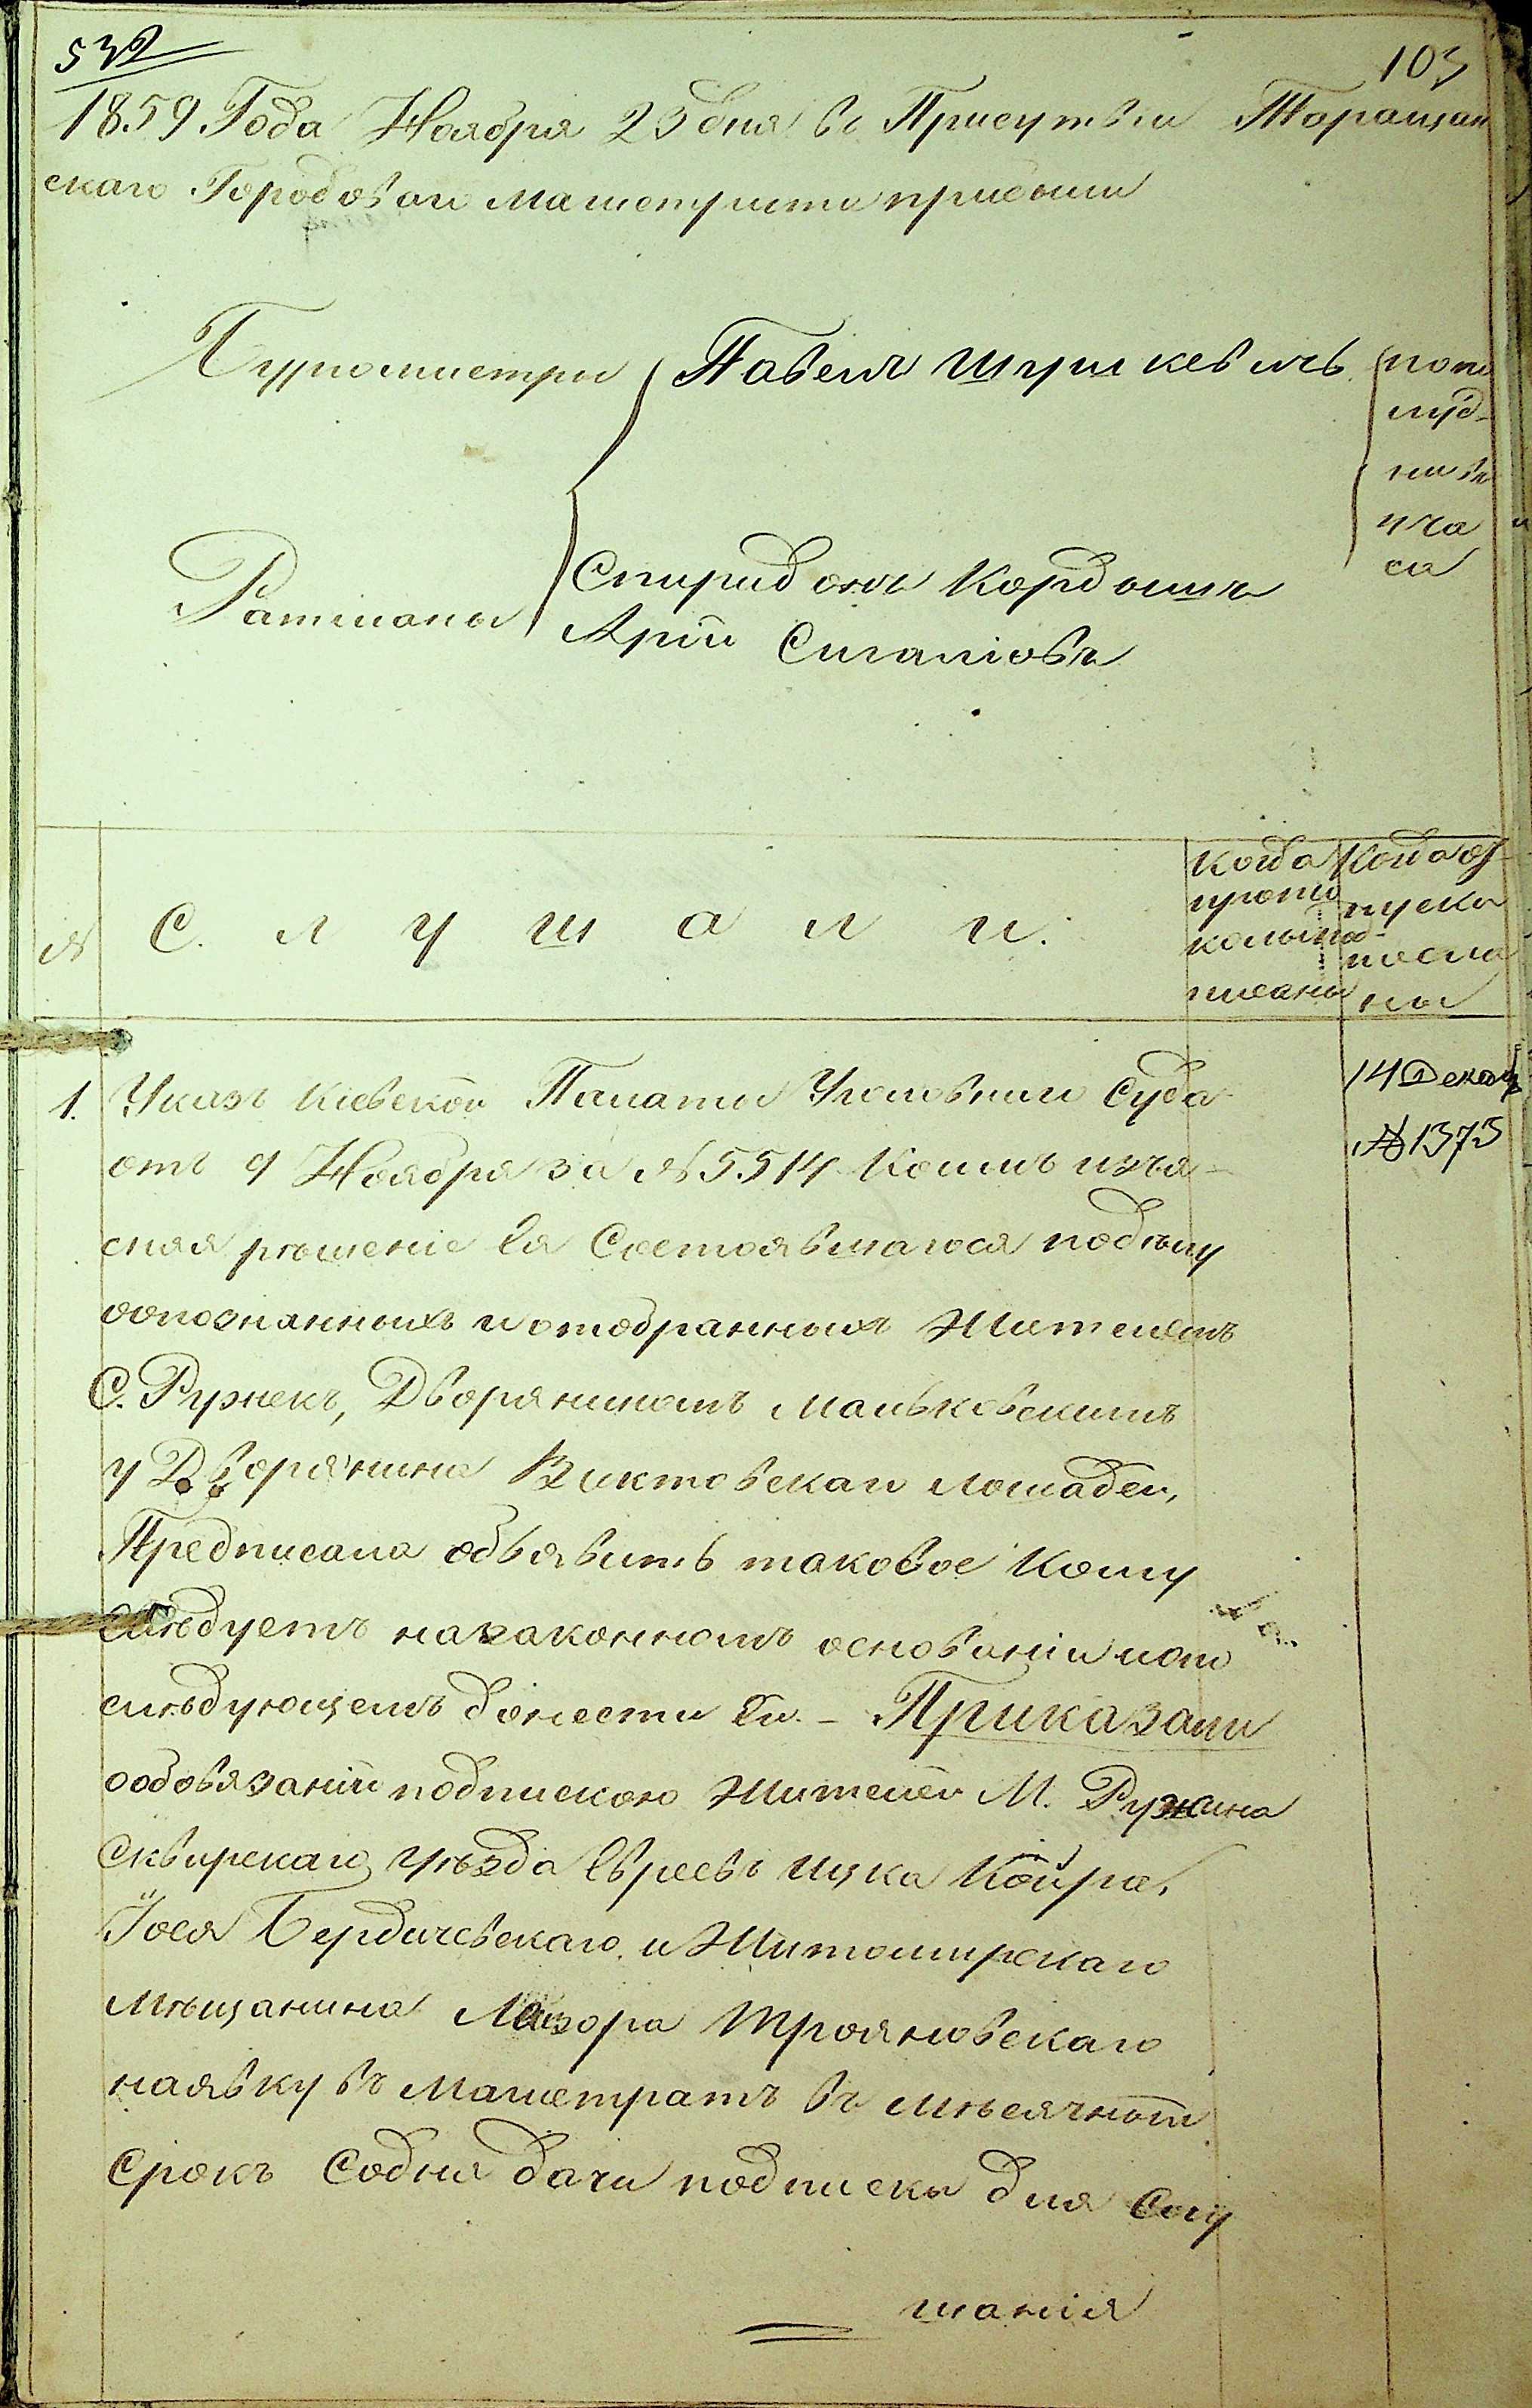 532
103
1859 Года Ноября 23 дня въ Присутвіи Таращан
скаго Городоваго Магистрата прибыли
Бургомистры Павелъ Шушкевичь
попо
луд-
ни въ
ича
са
Ратманы
Спиридонъ Кордышъ
Арій Сигаліовъ
№ С л у ш а л и.
Когда
прото
колы под-
писаны
Когда от-
пуски
посла
ны
1. Указъ Кіевской Палаты Уголовнаго Суда
14 Декаб
отъ 9 Ноября за № 5514 Коимъ изъя-
№ 1373
сняя рѣшеніе Ея Состоявшагося подѣлу
оопознанныхъ и отобранныхъ Жителемъ
С. Ружекъ, Дворяниномъ Мальковскимъ
у Дворянина Виктовскаго лошадей,
Предписала объявить таковое Кому
слѣдуетъ назаконномъ основаніи ипо
слѣдующемъ донести Ей. - Приказали
ообовязаніи подпискою Жителей М. Ружина
Сквирскаго уѣзда Евреевъ Ицка Койра,
Йося Бердичевскаго и Житомирскаго
мѣщанина Лазора Трояновскаго
наявку въ Магистратъ въ мѣсячный
Срокъ Содня дачи подписки для Слу
шанія